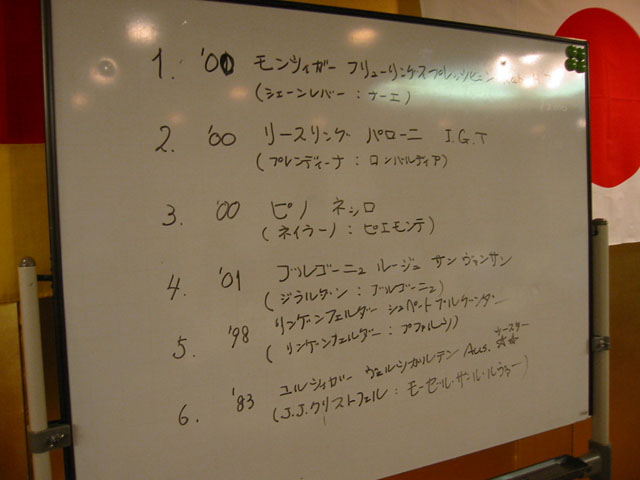 1. '00 モンツィガー フリューリングスプレッツヒェン
(シェーンレバー : ナーエ)
2. '00 リースリング パローニ I.G.T
(プレンディーナ : ロンバルディア)
3. '00 ピノ ネッロ
(ネイラーノ : ピエモンテ)
4. '01 ブルゴーニュ ルージュ サン ヴァンサン
(ジラルダン : ブルゴーニュ)
5. '98 リンゲンフェルダー シュペートブルグンダー
(リンゲンフェルダー : プファルツ)
6. '83 ユルツィガー ヴュルツガルテン Aus. ツースター ☆☆
(J.J.クリストフェル : モーゼル・ザール・ルヴァー)